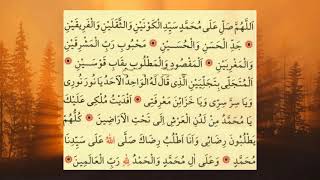 اَللّٰهُمَّ صَلِّ عَلٰى مُحَمَّدٍ سَيِّدِ الْكَوْنَيْنِ وَالثَّقَلَيْنِ وَالْفَرِيقَيْنِ
جَدِّ الْحَسَنِ وَالْحُسَيْنِ ۞ مَحْبُوبِ رَبِّ الْمَشْرِقَيْنِ
وَالْمَغْرِبَيْنِ ۞ اَلْمَقْصُودِ وَالْمَطْلُوبِ بِقَابِ قَوْسَيْنِ ۞
اَلْمُتَجَلِّى بِتَجَلِّيَيْنِ الَّذِى قَالَ لَهُ الْوَاحِدُ الْاَحَدُ يَا نُورَ نُورِى
وَيَا سِرَّ سِرِّى وَيَا خَزَائِنَ مَعْرِفَتِى ۞ اَفْدَيْتُ مُلْكِى عَلَيْكَ
يَا مُحَمَّدُ مِنْ لَدُنِ الْعَرْشِ اِلٰى تَحْتِ الْاَرَاضِينَ ۞ كُلُّهُمْ
يَطْلُبُونَ رِضَائِى وَاَنَا اَطْلُبُ رِضَاكَ صَلَّى اللهُ عَلٰى سَيِّدِنَا
مُحَمَّدٍ ۞ وَعَلٰى اٰلِ مُحَمَّدٍ وَالْحَمْدُ لِلّٰهِ رَبِّ الْعَالَمِينَ ۞